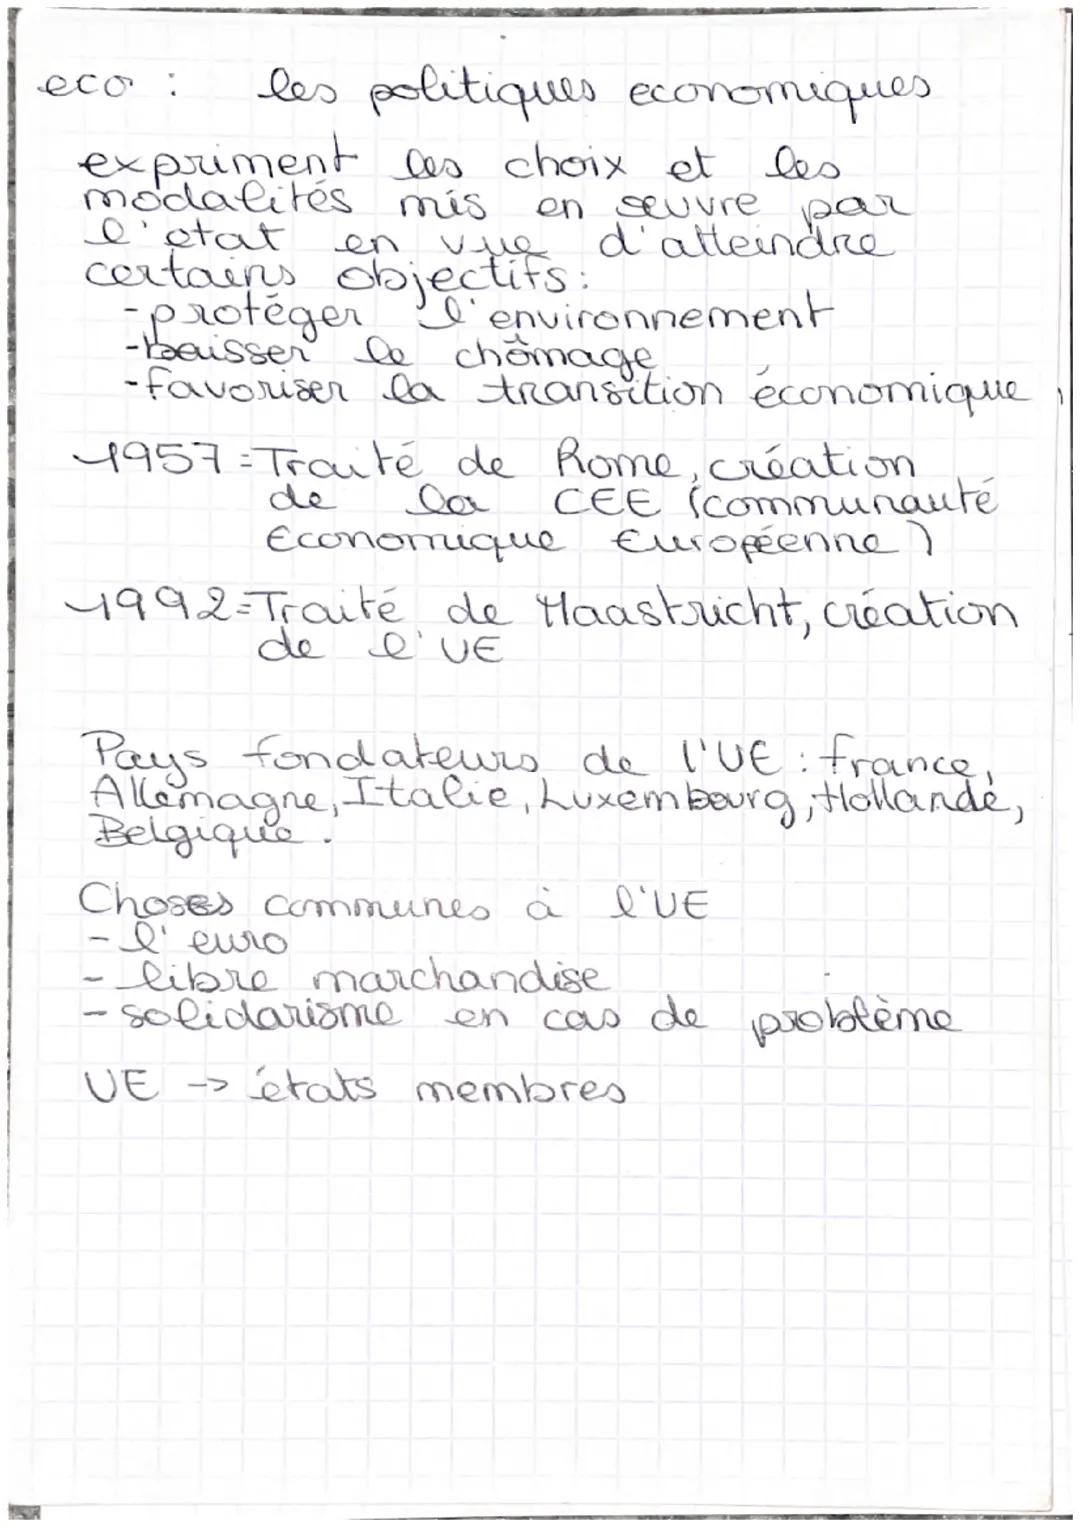 eco : les politiques economiques
expriment les choix et les
modalités mis en œuvre par
l'etat en vue d'atteindre
certains objectifs:
-protéger l'environnement
-baisser le chômage
-favoriser la transition économique
1957=Traité de Rome, création
de la CEE (communauté
Economique Européenne)
1992=Traité de Maastricht, création
de l'UE
Pays fondateurs de l'UE : france,
Allemagne, Italie, Luxembourg, Hollande,
Belgique.
Choses communes à l'UE
- l'euro
- libre marchandise
- solidarisme en cas de problème
UE -> états membres